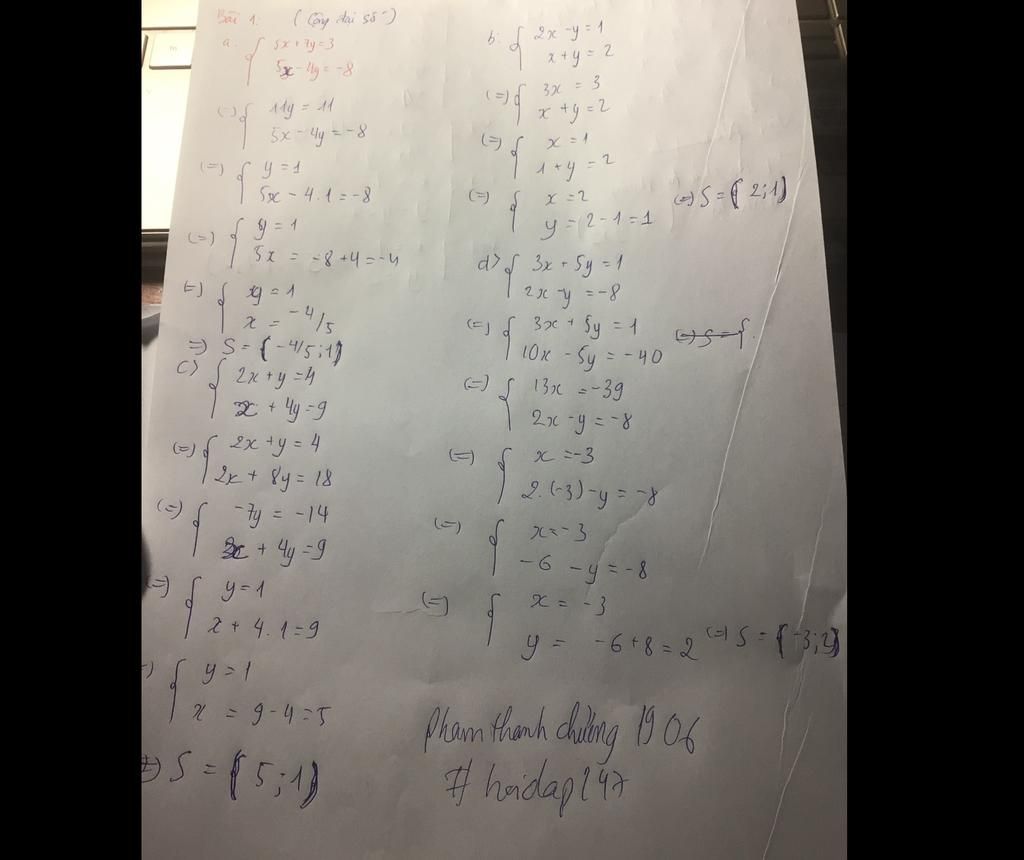 Bài 1: (Cộng đại số)
a. { 5x + 7y = 3
5x - 4y = -8
(=) { 11y = 11
5x - 4y = -8
(=) { y = 1
5x - 4.1 = -8
(=) { y = 1
5x = -8 + 4 = -4
(=) { y = 1
x = -4/5
=) S = (-4/5; 1)
c) { 2x + y = 4
x + 4y = 9
(=) { 2x + y = 4
2x + 8y = 18
(=) { -7y = -14
x + 4y = 9
(=) { y = 1
x + 4.1 = 9
(=) { y = 1
x = 9 - 4 = 5
S = (5; 1)
b. { 2x - y = 1
x + y = 2
(=) { 3x = 3
x + y = 2
(=) { x = 1
1 + y = 2
(=) { x = 2
y = 2 - 1 = 1 (=) S = (2; 1)
d) { 3x + 5y = 1
2x - y = -8
(=) { 3x + 5y = 1 (=) S = {
10x - 5y = -40
(=) { 13x = -39
2x - y = -8
(=) { x = -3
2.(-3) - y = -8
(=) { x = -3
-6 - y = -8
(=) { x = -3
y = -6 + 8 = 2 (=) S = (-3; 2)
phamthanhchương 1906
# hoidap247